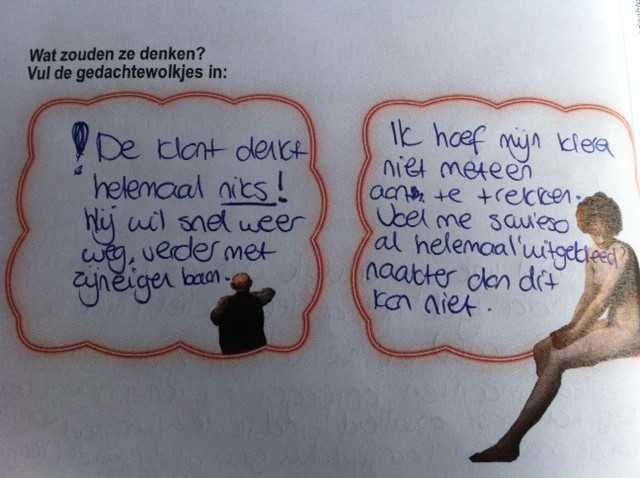 Wat zouden ze denken?
Vul de gedachtewolkjes in:
! De klant denkt
helemaal niks!
Hij wil snel weer
weg, verder met
zijn eigen baan.
Ik hoef mijn kleren
niet meteen
aan te trekken.
Voel me sowieso
al helemaal 'uitgekleed'
naakter dan dit
kan niet.